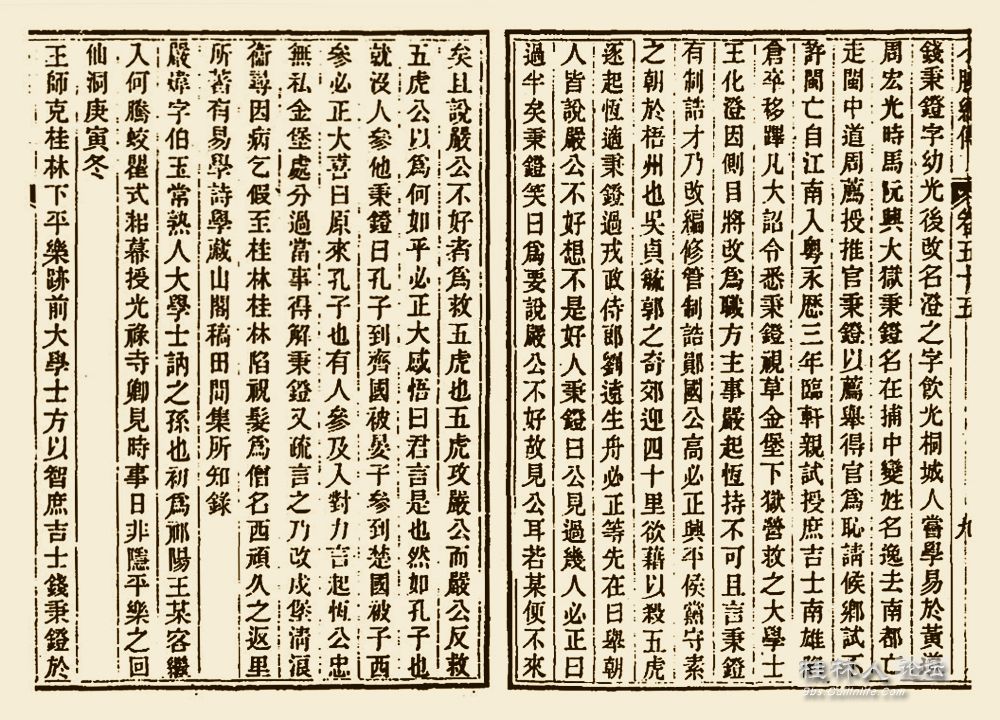 小腆紀傳
卷五十五
九
錢秉鐙字幼光後改名澄之字飲光桐城人嘗學易於黃道
周宏光時馬阮興大獄秉鐙名在捕中變姓名逸去南都亡
走閩中道周薦授推官秉鐙以薦舉得官為恥請候鄉試不
許閩亡自江南入粵永歷三年臨軒親試授庶吉士南雄
倉卒移蹕凡大詔令悉秉鐙視草金堡下獄營救之大學士
王化澄因側目將改為職方主事嚴起恆持不可且言秉鐙
有制誥才乃改編修管制誥鄖國公高必正興平侯黨守素
之朝於梧州也吳貞毓郭之奇郊迎四十里欲藉以殺五虎
逐起恆適秉鐙過戎政侍郎劉遠生舟必正等先在曰舉朝
人皆說嚴公不好想不是好人秉鐙曰公見過幾人必正曰
過半矣秉鐙笑曰為要說嚴公不好故見公耳若某便不來
矣且說嚴公不好者為救五虎也五虎攻嚴公而嚴公反救
五虎公以為何如乎必正大感悟曰君言是也然如孔子也
就沒人參他秉鐙曰孔子到齊國被晏子參到楚國被子西
參必正大喜曰原來孔子也有人參及入對力言起恆公忠
無私金堡處分過當事得解秉鐙又疏言之乃改戍堡清浪
衞尋因病乞假至桂林桂林陷祝髮為僧名西頑久之返里
所著有易學詩學藏山閣稿田間集所知錄
嚴煒字伯玉常熟人大學士訥之孫也初為祁陽王某容繼
入何騰蛟瞿式耜幕授光祿寺卿見時事日非隱平樂之回
仙洞庚寅冬
王師克桂林下平樂跡前大學士方以智庶吉士錢秉鐙於
桂林人論坛
bbs.GuilinLife.Com